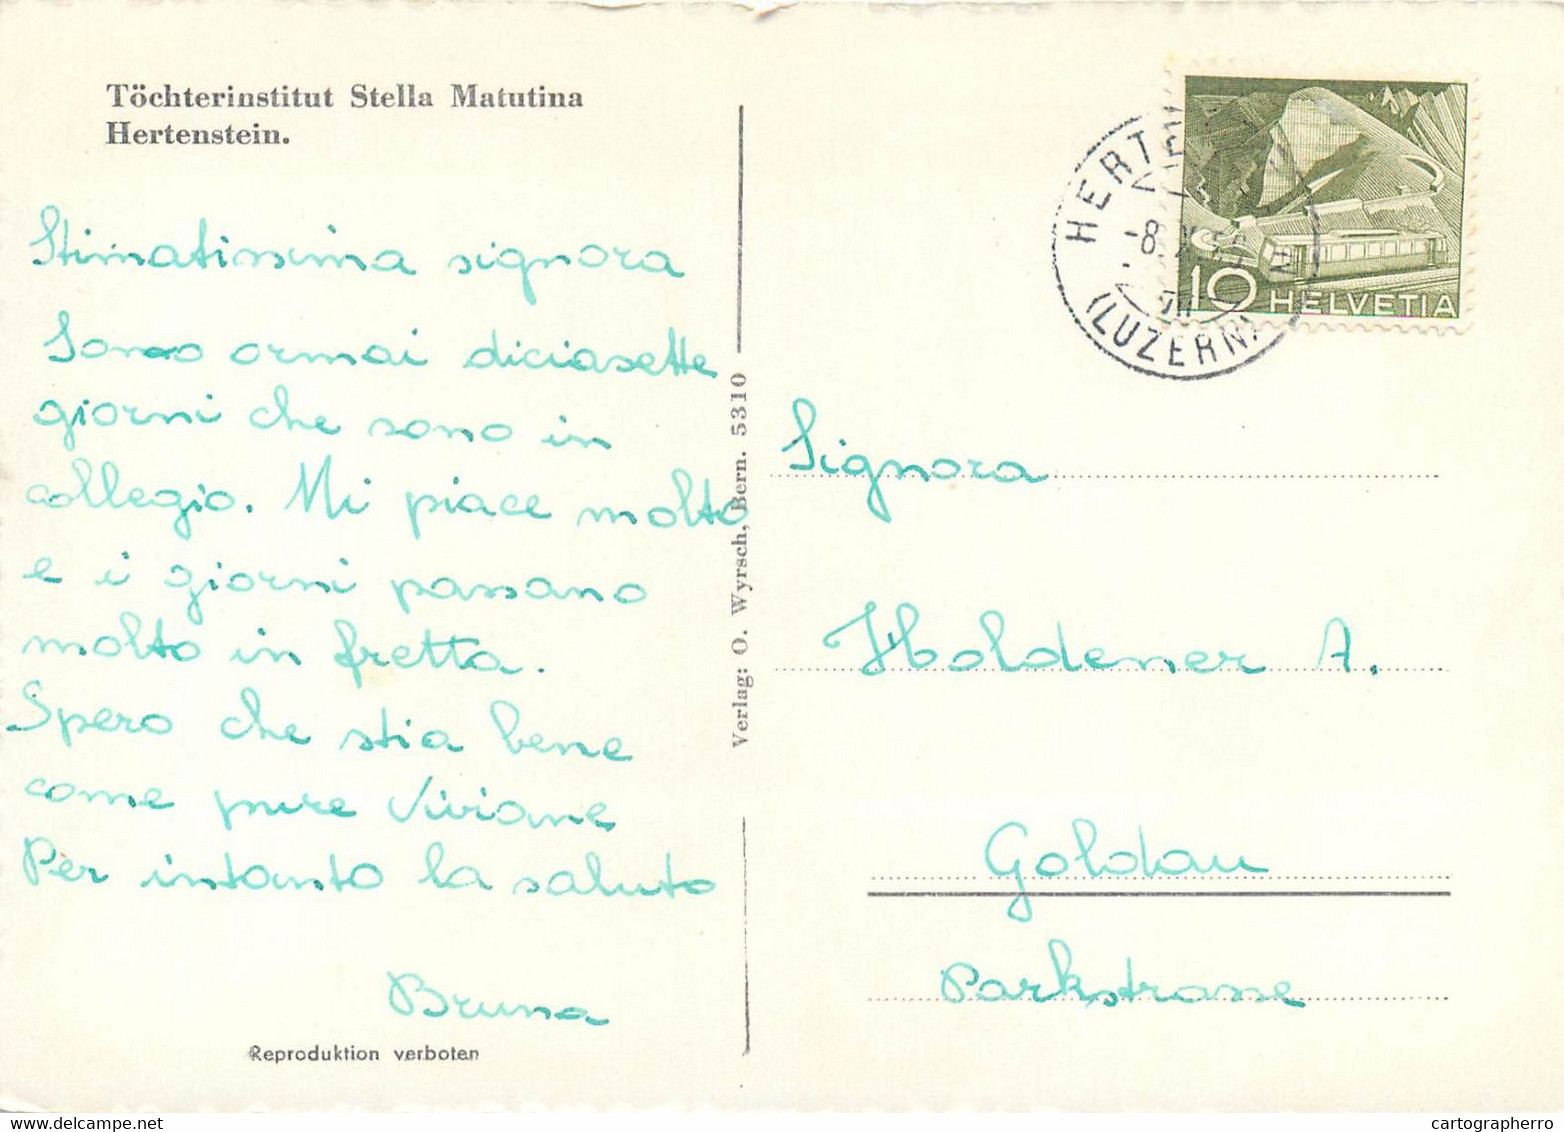 Töchterinstitut Stella Matutina
Hertenstein.
Stimatissima signora
Sono ormai diciasette
giorni che sono in
collegio. Mi piace molto
e i giorni passano
molto in fretta.
Spero che stia bene
come pure Viviane
Per intanto la saluto
Bruna
Reproduktion verboten
Verlag: O. Wyrsch, Bern. 5310
HERT
-8
(LUZERN)
10 HELVETIA
Signora
Holdener A.
Goldau
Parkstrasse
cartographerro
delcampe.net